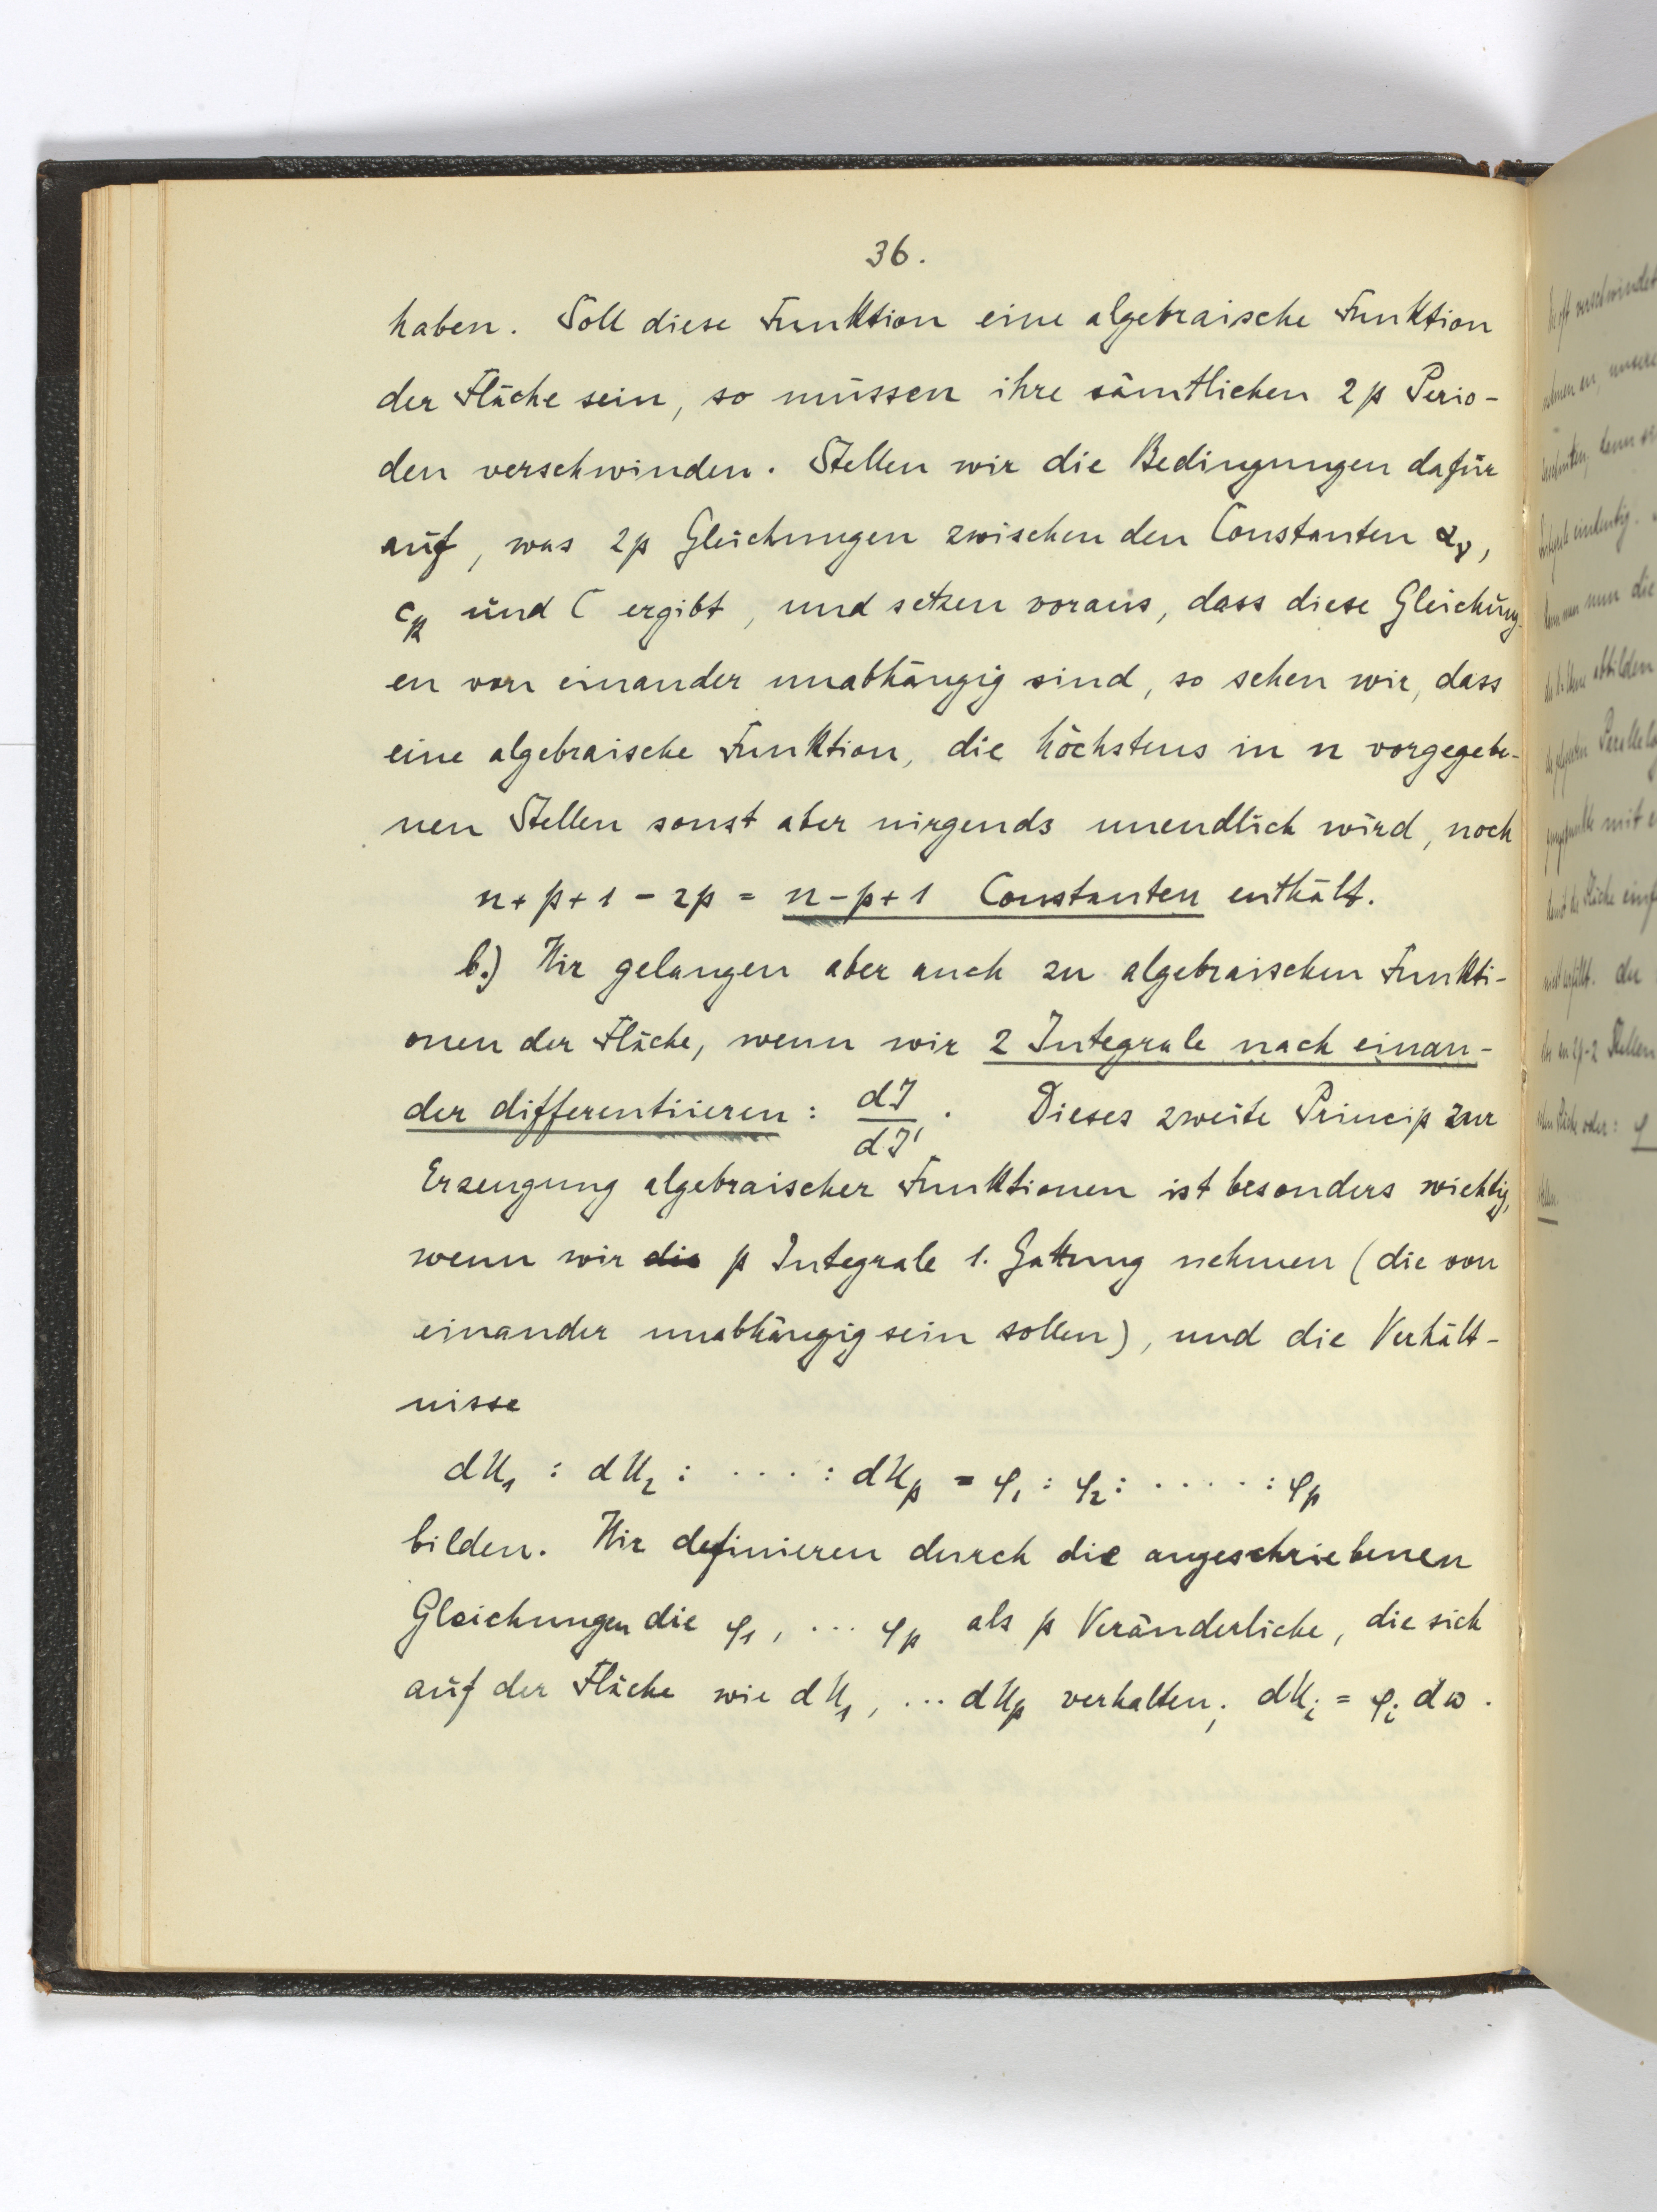 36.
haben. Soll diese Funktion eine algebraische Funktion
der Fläche sein, so müssen ihre sämtlichen 2p Perio-
den verschwinden. Stellen wir die Bedingungen dafür
auf, was 2p Gleichungen zwischen den Constanten α_ν,
c_k und C ergibt, und setzen voraus, dass diese Gleichung-
en von einander unabhängig sind, so sehen wir, dass
eine algebraische Funktion, die höchstens in n vorgegebe-
nen Stellen sonst aber nirgends unendlich wird, noch
n+p+1-2p = n-p+1 Constanten enthält.
b.) Wir gelangen aber auch zu algebraischen Funkti-
onen der Fläche, wenn wir 2 Integrale nach einan-
der differentiieren: dJ/dJ'. Dieses zweite Princip zur
Erzeugung algebraischer Funktionen ist besonders wichtig,
wenn wir die p Integrale 1. Gattung nehmen (die von
einander unabhängig sein sollen), und die Verhält-
nisse
du₁ : du₂ : .... : du_p = φ₁ : φ₂ : ..... : φ_p
bilden. Wir definieren durch die angeschriebenen
Gleichungen die φ₁, ... φ_p als p Veränderliche, die sich
auf der Fläche wie du₁, ... du_p verhalten; du_i = φ_i dω.